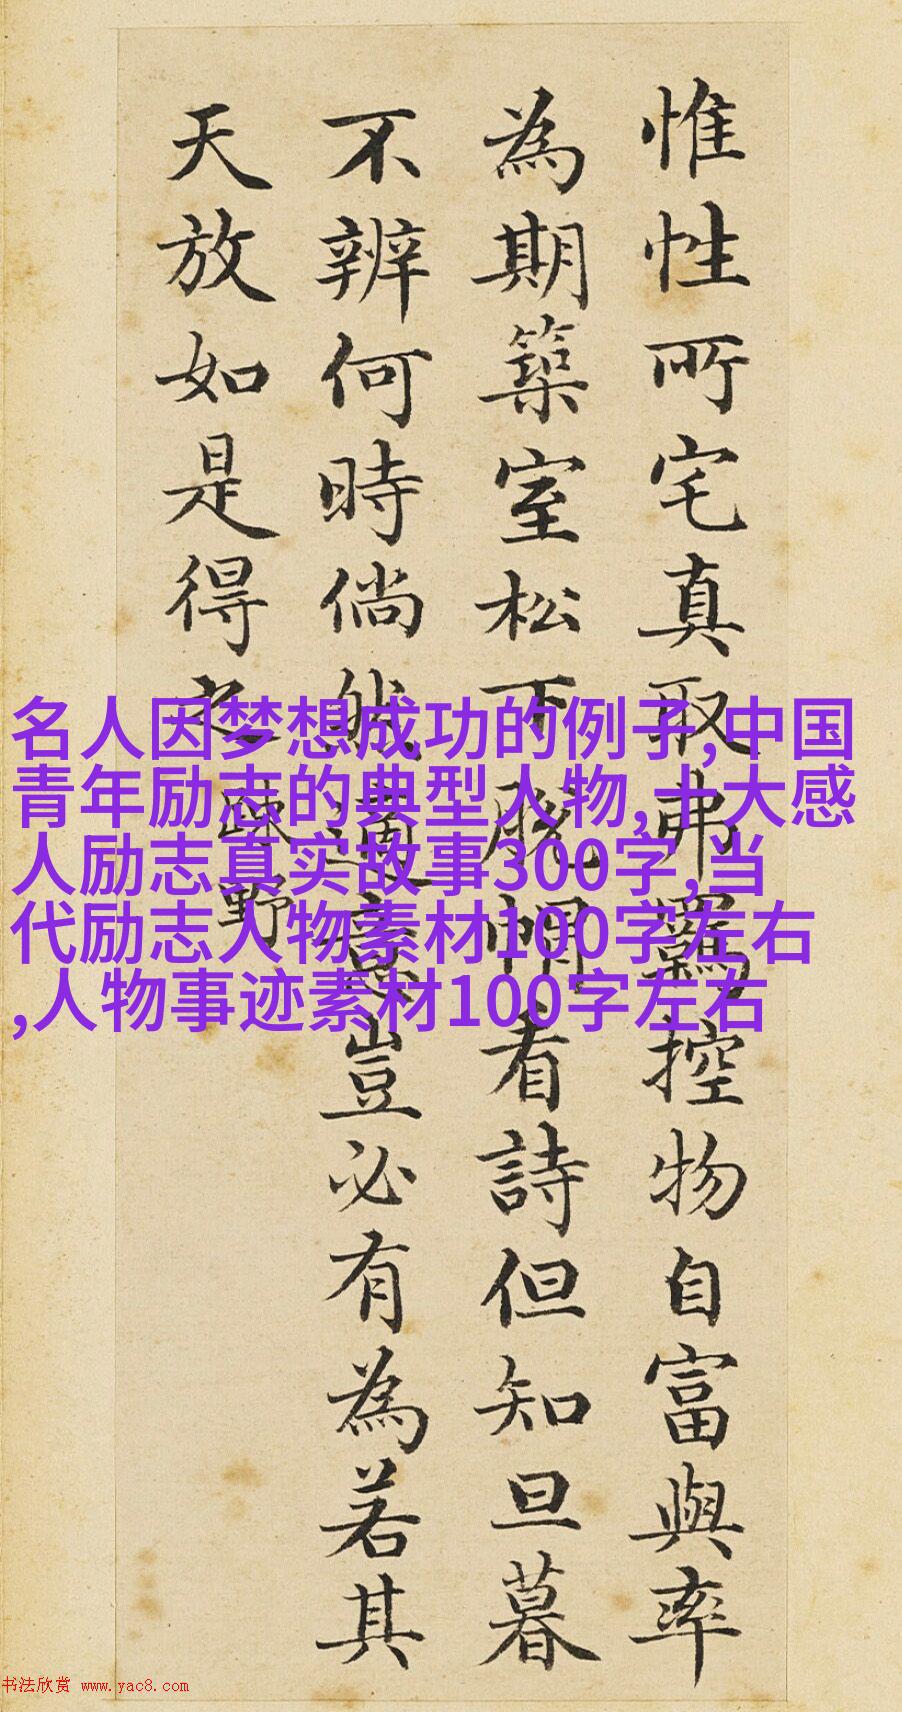 惟性所宅真取弗羈控物自富與率
為期築室松下脫帽看詩但知旦暮
不辨何時倘然適意豈必有為若其
天放如是得之疎野
名人因梦想成功的例子,中国
青年励志的典型人物,十大感
人励志真实故事300字,当
代励志人物素材100字左右
,人物事迹素材100字左右
书法欣赏 www.yac8.com